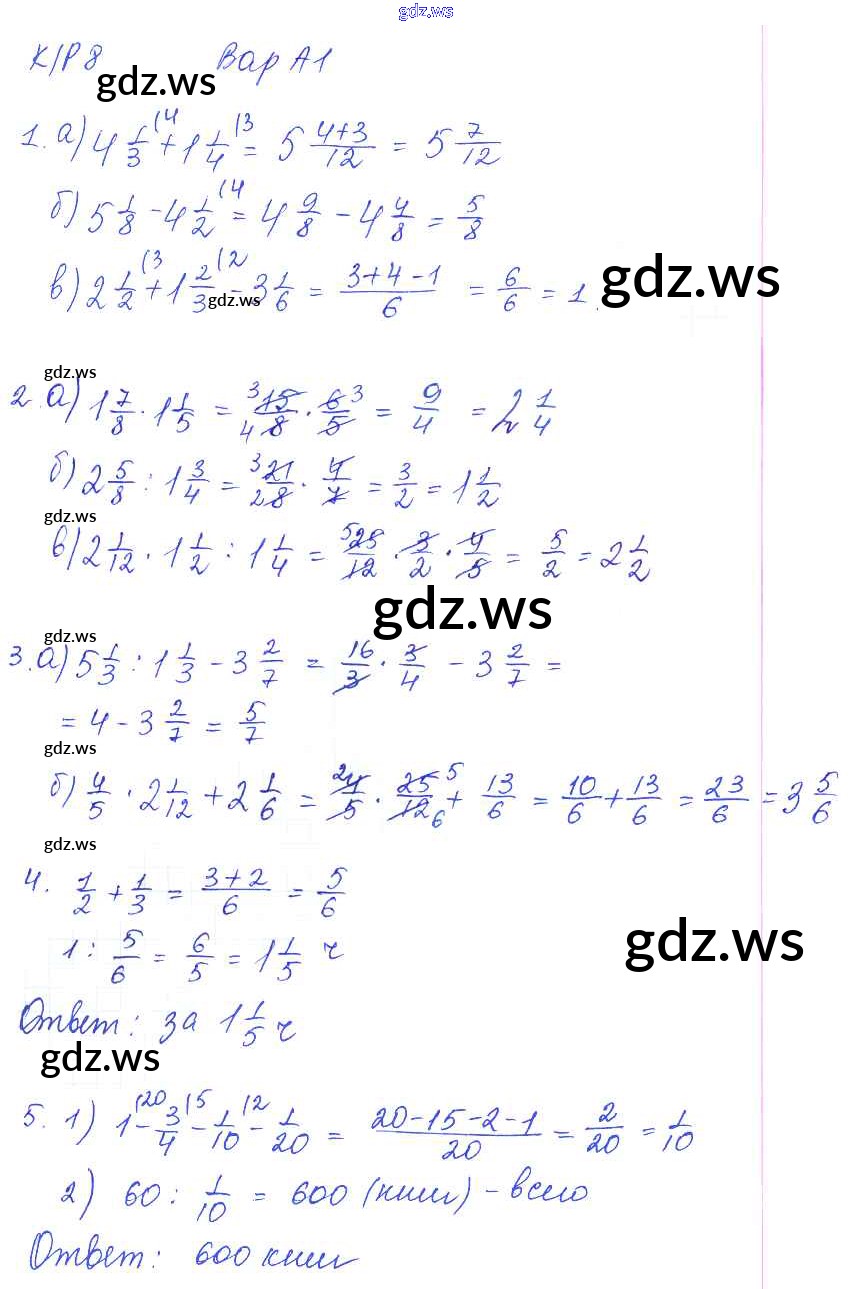 gdz.ws
К/Р 8 Вар А1
gdz.ws
1. а) 4 1/3 (4 + 1 1/4 (3 = 5 (4+3)/12 = 5 7/12
б) 5 1/8 - 4 1/2 (4 = 4 9/8 - 4 4/8 = 5/8
в) 2 1/2 (3 + 1 2/3 (2 - 3 1/6 = (3+4-1)/6 = 6/6 = 1.
gdz.ws
gdz.ws
gdz.ws
2. а) 1 7/8 · 1 1/5 = 3 15/8 4 · 6/5 3 = 9/4 = 2 1/4
б) 2 5/8 : 1 3/4 = 3 21/8 2 · 4/7 = 3/2 = 1 1/2
gdz.ws
в) 2 1/12 · 1 1/2 : 1 1/4 = 5 25/12 · 3/2 · 4/5 = 5/2 = 2 1/2
gdz.ws
gdz.ws
3. а) 5 1/3 : 1 1/3 - 3 2/7 = 16/3 · 3/4 - 3 2/7 =
= 4 - 3 2/7 = 5/7
gdz.ws
б) 4/5 · 2 1/12 + 2 1/6 = 2 4/5 · 25/12 5 6 + 13/6 = 10/6 + 13/6 = 23/6 = 3 5/6
gdz.ws
4. 1/2 + 1/3 = (3+2)/6 = 5/6
1 : 5/6 = 6/5 = 1 1/5 ч
gdz.ws
Ответ: за 1 1/5 ч
gdz.ws
5. 1) 1 (20 - 3/4 (5 - 1/10 (2 - 1/20 = (20-15-2-1)/20 = 2/20 = 1/10
2) 60 : 1/10 = 600 (книг) - всего
Ответ: 600 книг